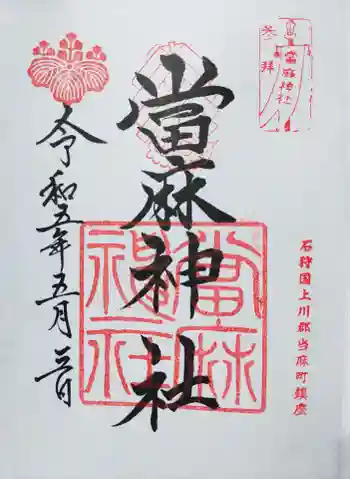 参拝
當麻神社
石狩国上川郡当麻町鎮座
當麻神社
當麻
神社
令和五年五月三日